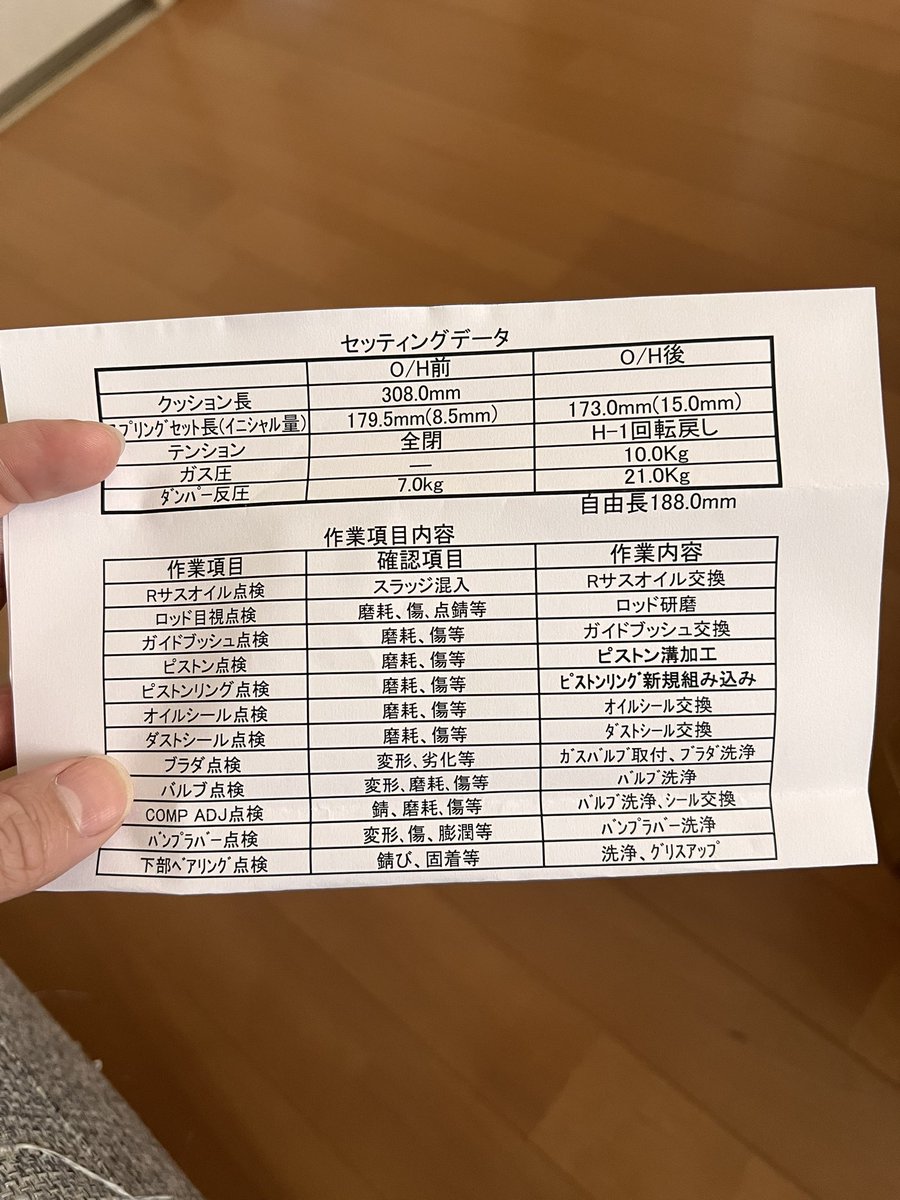 セッティングデータ
O/H前 O/H後
クッション長 308.0mm
プリングセット長(イニシャル量) 179.5mm(8.5mm) 173.0mm(15.0mm)
テンション 全閉 H-1回転戻し
ガス圧 — 10.0Kg
ダンパー反圧 7.0kg 21.0Kg
自由長188.0mm
作業項目内容
作業項目 確認項目 作業内容
Rサスオイル点検 スラッジ混入 Rサスオイル交換
ロッド目視点検 磨耗、傷、点錆等 ロッド研磨
ガイドブッシュ点検 磨耗、傷等 ガイドブッシュ交換
ピストン点検 磨耗、傷等 ピストン溝加工
ピストンリング点検 磨耗、傷等 ピストンリング新規組み込み
オイルシール点検 磨耗、傷等 オイルシール交換
ダストシール点検 磨耗、傷等 ダストシール交換
ブラダ点検 変形、劣化等 ガスバルブ取付、ブラダ洗浄
バルブ点検 変形、磨耗、傷等 バルブ洗浄
COMP ADJ点検 錆、磨耗、傷等 バルブ洗浄、シール交換
バンプラバー点検 変形、傷、膨潤等 バンプラバー洗浄
下部ベアリング点検 錆び、固着等 洗浄、グリスアップ